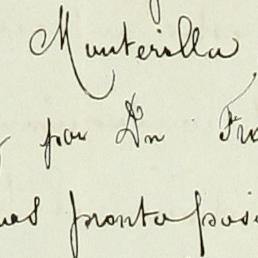 Monterilla
por Dn Fra
as pronta posi